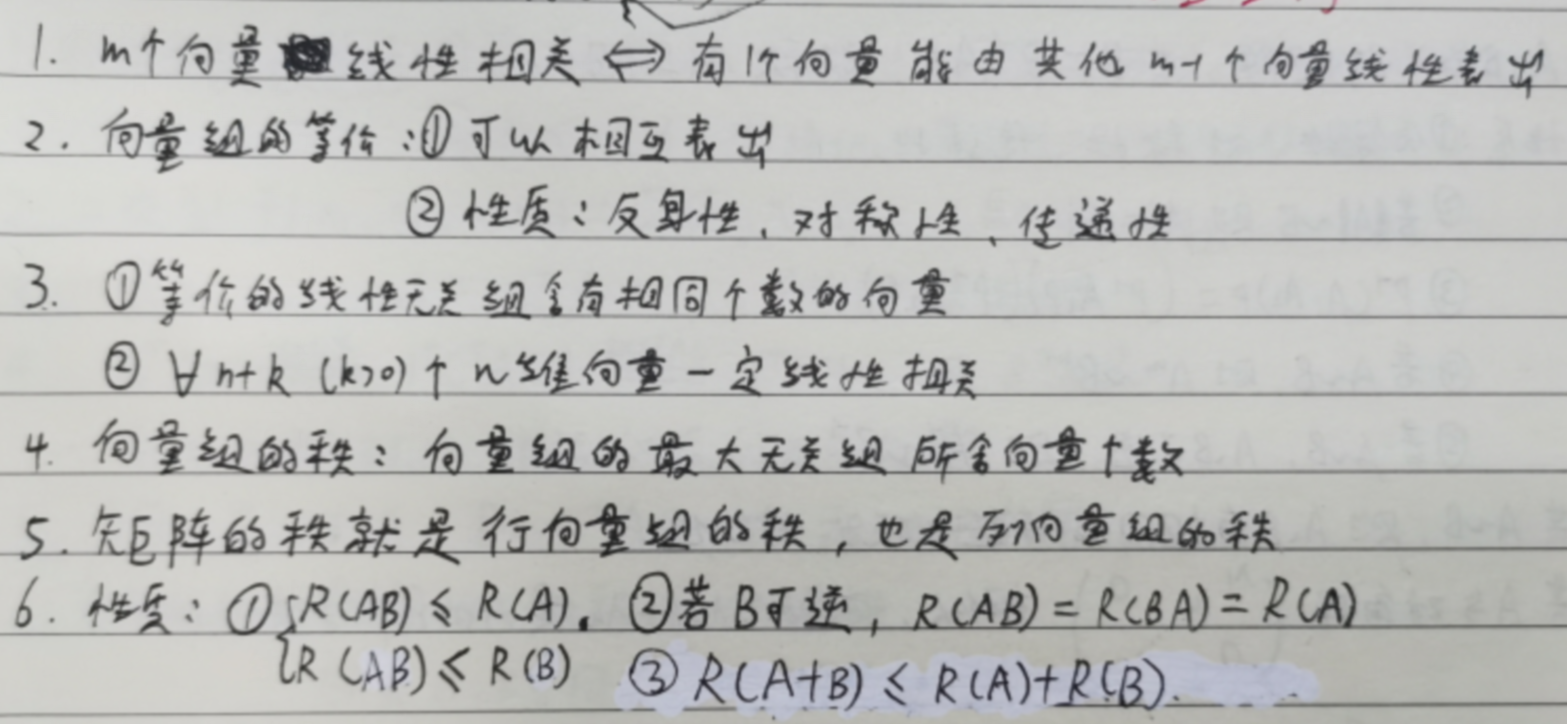 1. m个向量线性相关 ⇔ 有1个向量能由其他 m-1 个向量线性表出
2. 向量组的等价:① 可以相互表出
② 性质:反身性、对称性、传递性
3. ①等价的线性无关组含有相同个数的向量
② ∀ n+k (k>0) 个 n维向量一定线性相关
4. 向量组的秩:向量组的最大无关组所含向量个数
5. 矩阵的秩就是行向量组的秩,也是列向量组的秩
6. 性质:① {R(AB) ≤ R(A). ②若B可逆, R(AB) = R(BA) = R(A)
R(AB) ≤ R(B) ③ R(A+B) ≤ R(A)+R(B).